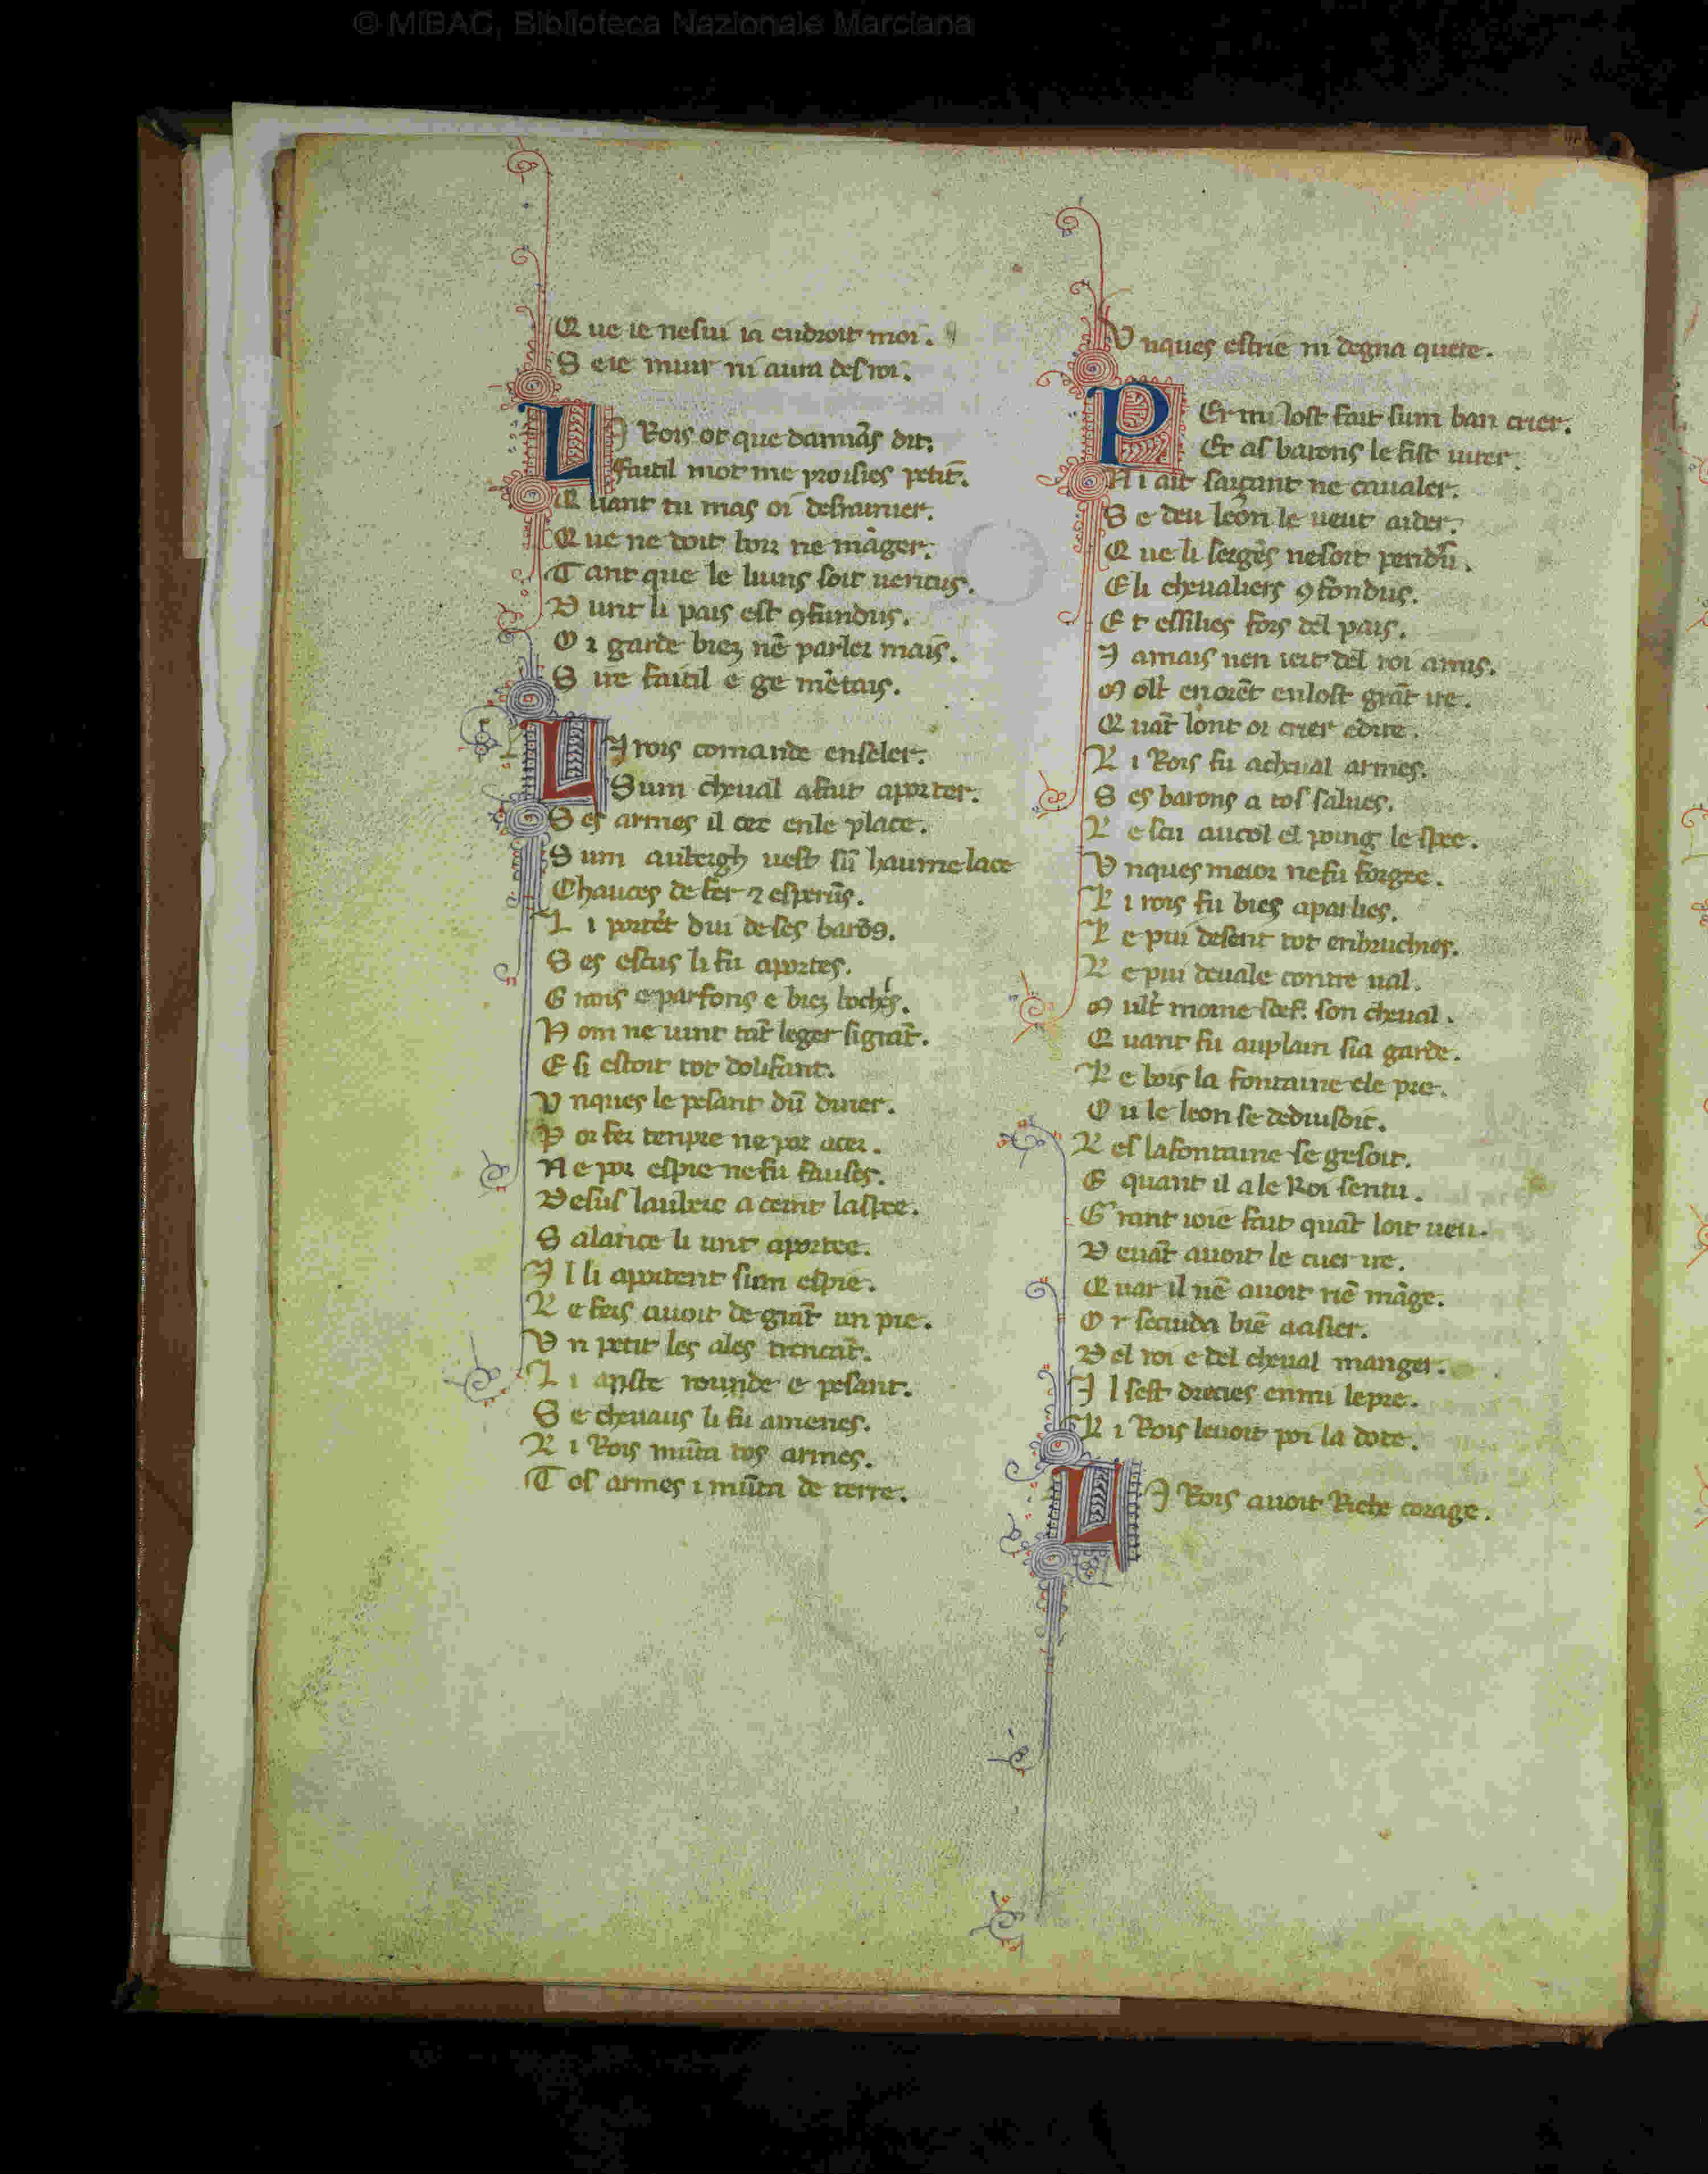 © MiBAC, Biblioteca Nazionale Marciana
Q ue ie nesui ia endroit moi.
S eie muir ni aura desroi.
L I Rois ot que damãs dit.
Faitil mot me proisies petit.
Q uant tu mas oi desramier.
Q ue ne doit boir ne mãger.
T ant que le liuns soit uencus.
D unt li pais est ꝯfundus.
O i garde biez nẽ parler mais.
S ire faitil e ge mẽtais.
L I rois comande enseler.
Sum cheual afait aporter.
S es armes il cec enle place.
S um aubergh uest sũ haume lace
Chauces de fer ⁊ esperũs.
L i portẽt dui de ses barõs.
S es escus li fu aportes.
G rans e parfons e biez boches.
H om ne uint tãt leger si grãt.
E si estoit tot dolifant.
V nques le pesant dũ diner.
P or fer tenpre ne por acer.
N e por espie ne fu fauses.
Desus lauberc a ceint laspee.
S alance li unt aportee.
I l li aportent sum espie.
L e fers auoit de grãt un pie.
V n petit les ales trencãt.
L i anste rounde e pesant.
S e cheuaus li fu amenes.
L i Rois mũta tos armes.
T os armes i mũta de terre.
V nques estrie ni degna quere.
P Er mi lost fait sum ban crier.
Et as barons le fist uiter.
N i ait sarçant ne caualer.
S e deu leon le ueut aider.
Q ue li sergẽs nesoit pendũ.
E li cheualiers ꝯfondus.
E t essilies fors del pais.
I amais nen iert del roi amis.
M olt en orẽt enlost grãt ire.
Q uãt lont oi crier e dire.
L i Rois fu acheual armes.
S es barons a tos salues.
L escu aucol el poing lespee.
V nques meior ne fu forgee.
L i rois fu bies aparlies.
L e pui desent tot enbruchies.
L e pui deuale contre ual.
M ult moine son cheual.
Q uant fu auplain sia garde.
L e bois la fontaine ele pre.
O u le leon se deduisoit.
L es lafontaine se gesoit.
E quant il a le Roi sentu.
G rant ioie fait quãt loit ueu.
D euãt auoit le cuer ire.
Q uar il nẽ auoit riẽ mãge.
O r secuida biẽ aasier.
D el roi e del cheual manger.
I l sest drecies enmi lepre.
L i Rois leuoit poi la dote.
L I Rois auoit Riche corage.